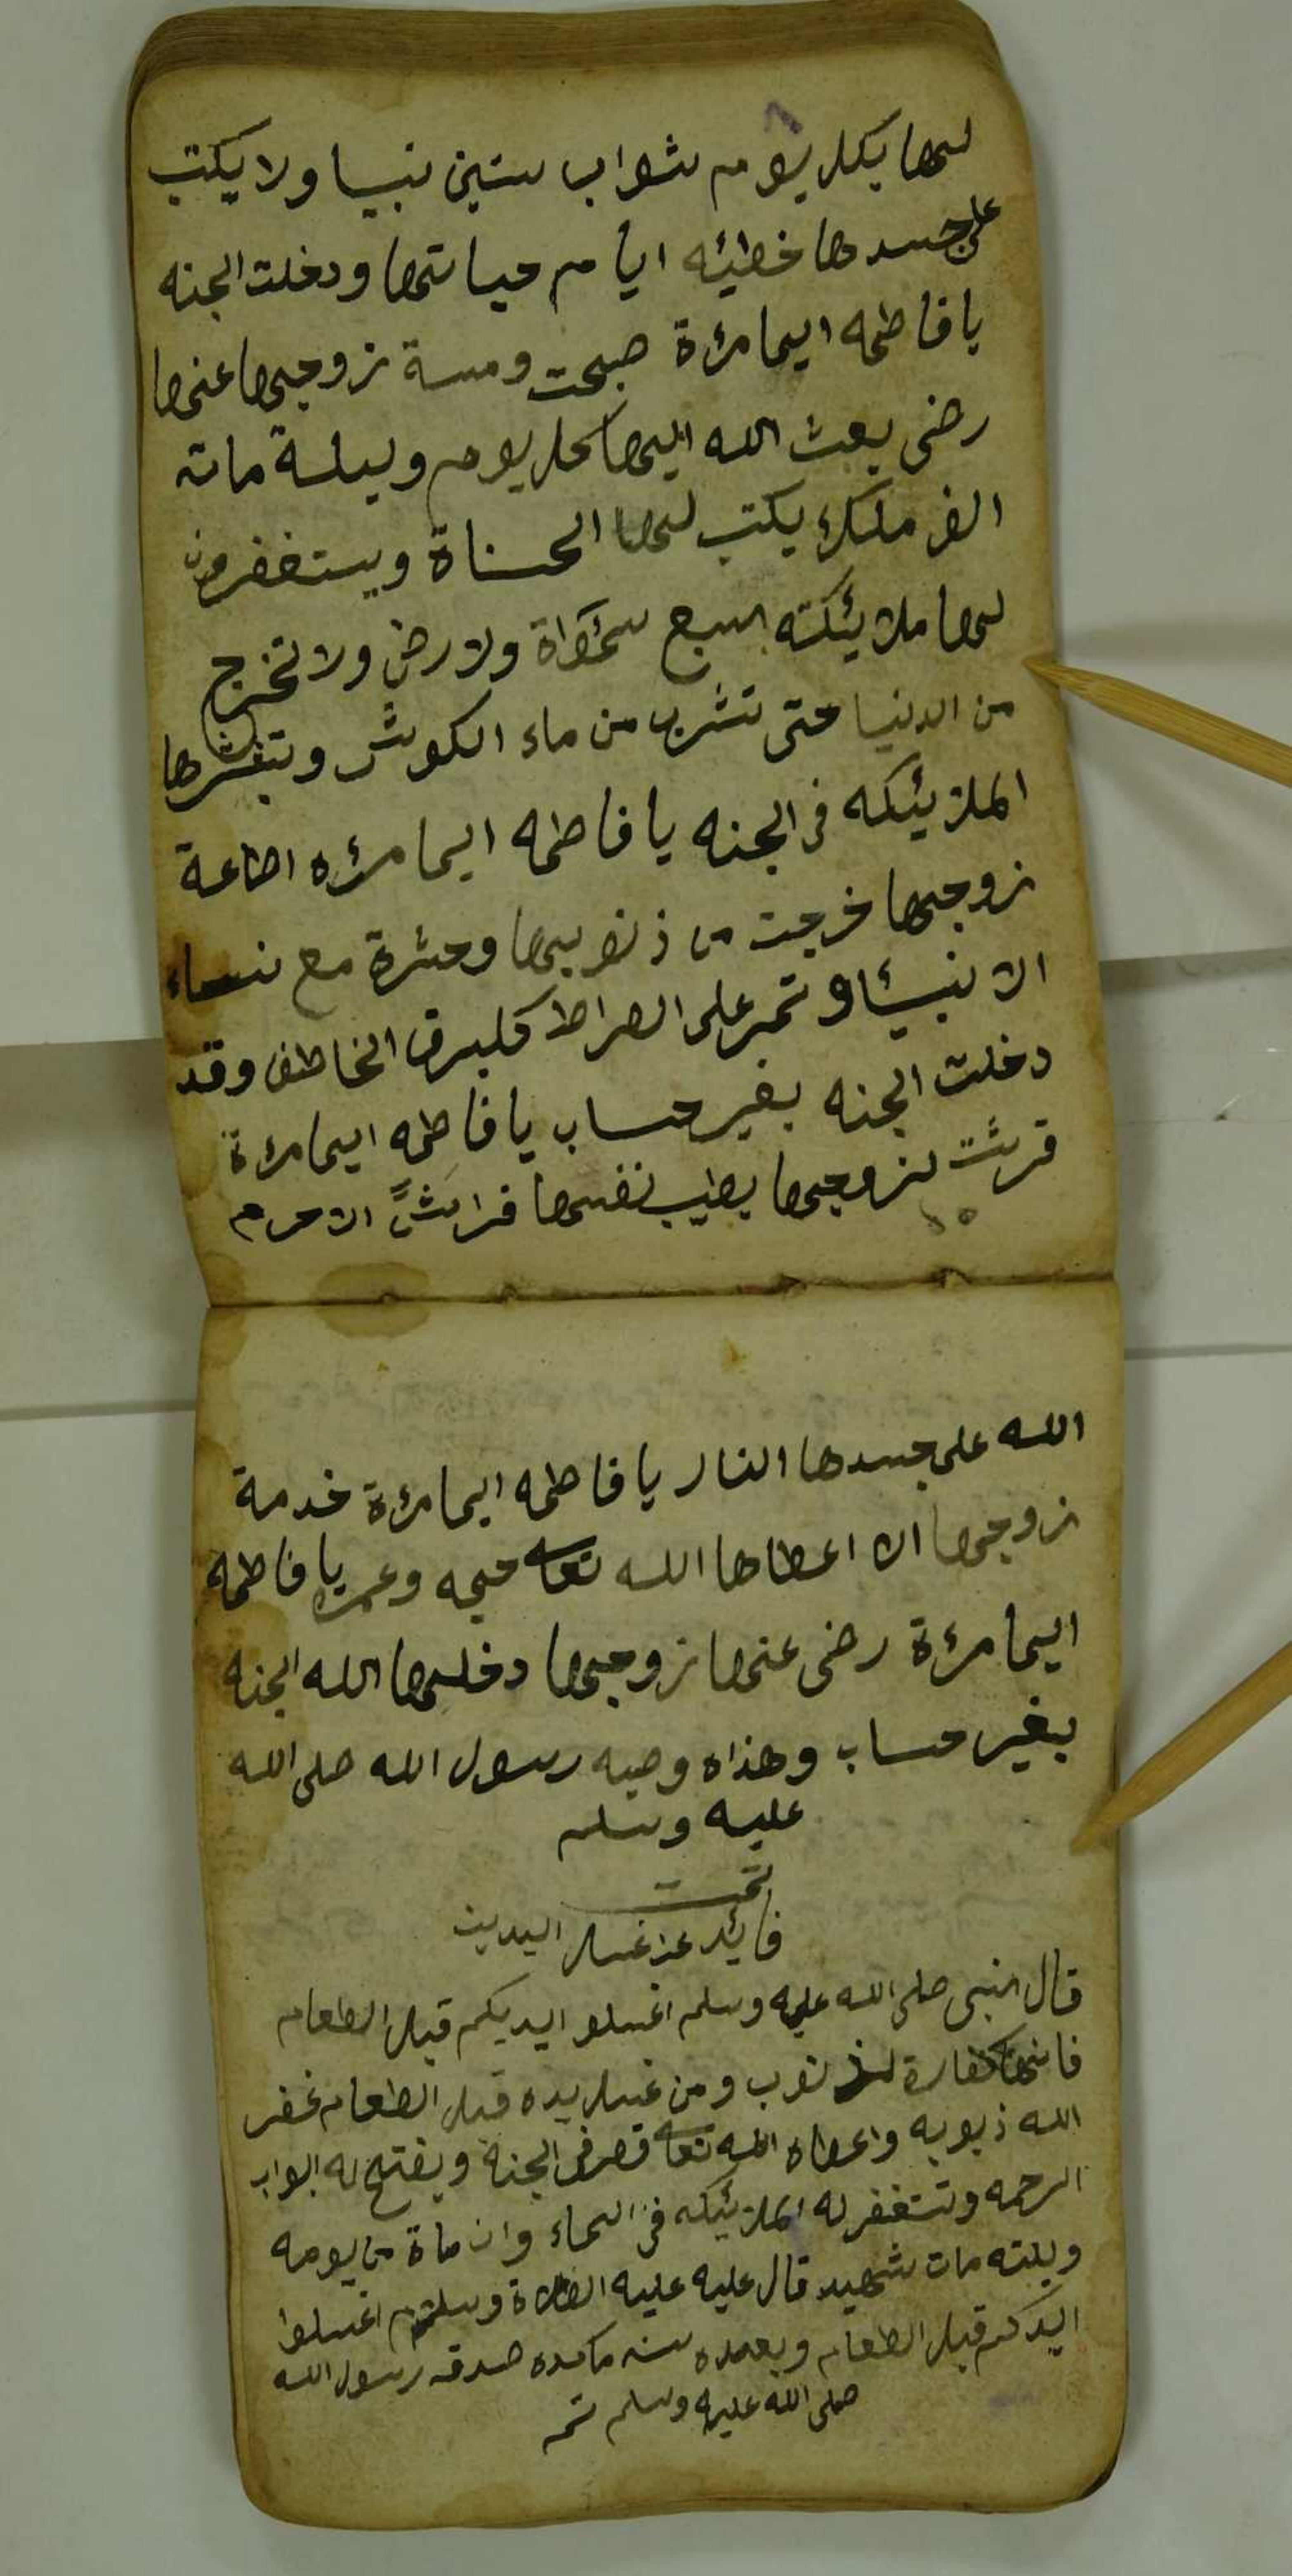 لها بكل يوم ثواب ستين نبيا ولا يكتب
على جسدها خطيئه ايام حياتها ودخلت الجنه
يا فاطمه ايما مرءة صبحت ومسة زوجها عنها
رضى يبعث الله اليها كل يوم وليلة ماته
الف ملك يكتب لها الحسناة ويستغفرون
لها ملايئكته السبع سموٰاة ولارض ولا تخرج
من الدنيا حتى تشرب من ماء الكوثر وتبشرها
الملايئكه فى الجنه يا فاطمه ايما مرءه اطاعة
زوجها خرجت من ذنوبها وحشرة مع نساء
الانبيئا وتمر على الصراط كلبرق الخاطف وقد
دخلت الجنه بغير حساب يا فاطمه ايما مرءة
فرشت لزوجها بطيب نفسها فراشً الا حرم
الله على جسدها النار يا فاطمه ايما مرءة خدمة
زوجها الا اعطاها الله تعا حجه وعمره يا فاطمه
ايما مرءة رضى عنها زوجها دخلها الله الجنه
بغير حساب وهذاه وصيه رسول الله صلى الله
عليه وسلم
تمت
فايئد عن غسل اليدين
قال النبى صلى الله عليه وسلم اغسلو ايديكم قبل الطعام
فانها كفارة لذنوب ومن غسل يده قبل الطعام غفر
الله ذبوبه واعطاه الله تعا قصر فى الجنة ويفتح له ابواب
الرحمه وتستغفر له الملايئكه فى السماء وان ماة من يومه
وليلته مات شهيد قال عليه عليه الصلاة وسلم اغسلوا
ايدكم قبل الطعام وبعده سنه ماكده صدق رسول الله
صلى الله عليه وسلم تم